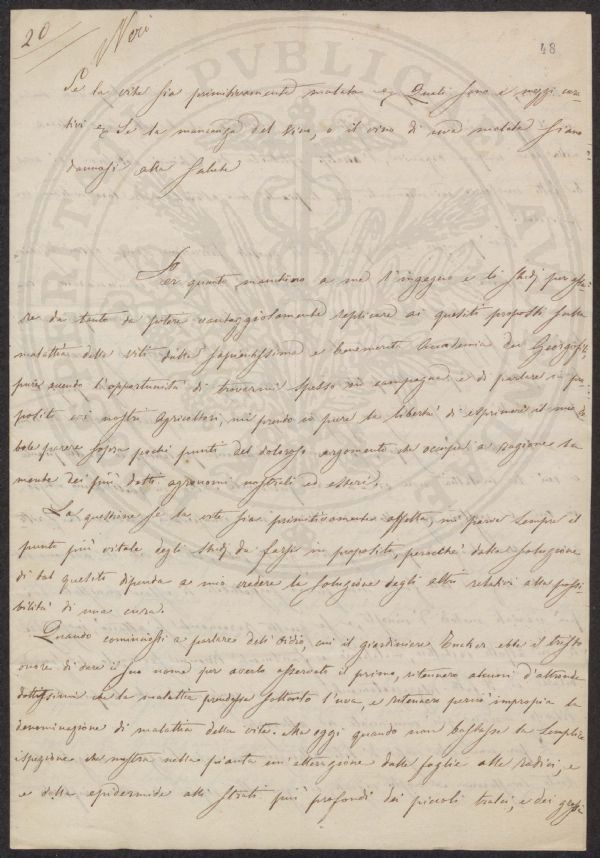 20
Neri
48
Se la vite sia primitivamente malata e Quali sono i mezzi cura-
tivi e Se la mancanza del vino, o il vino di uva malata siano
dannosi alla salute
Per quanto manchino a me l'ingegno e li studj per esse-
re da tanto da potere vantaggiosamente replicare ai quesiti proposti sulla
malattia delle viti dalla sapientissima e benemerita Accademia dei Georgofili,
pure avendo l'opportunità di trovarmi spesso in campagna e di parlare in pro-
posito coi nostri Agricoltori, mi prendo io pure la libertà di esprimere il mio de-
bole parere sopra pochi punti del doloroso argomento che occupa a ragione la
mente dei più dotti agronomi nostrali ed esteri.
La questione se la vite sia primitivamente affetta, mi parve sempre il
punto più vitale degli studj da farsi in proposito, perocchè dalla soluzione
di tal quesito dipenda a mio credere la soluzione degli altri relativi alla possi-
bilità di una cura.
Quando cominciossi a parlare dell'Oidio, cui il giardiniere Tucker ebbe il tristo
onore di dare il suo nome per averlo osservato il primo, ritennero alcuni d'altronde
dottissimi che la malattia prendesse soltanto l'uva, e ritennero perciò impropria la
denominazione di malattia della vite. Ma oggi quando non bastasse la semplice
ispezione che mostra nella pianta un'alterazione dalle foglie alle radici, e
e dalla epidermide alli strati più profondi dei piccoli tralci, e dei grossi